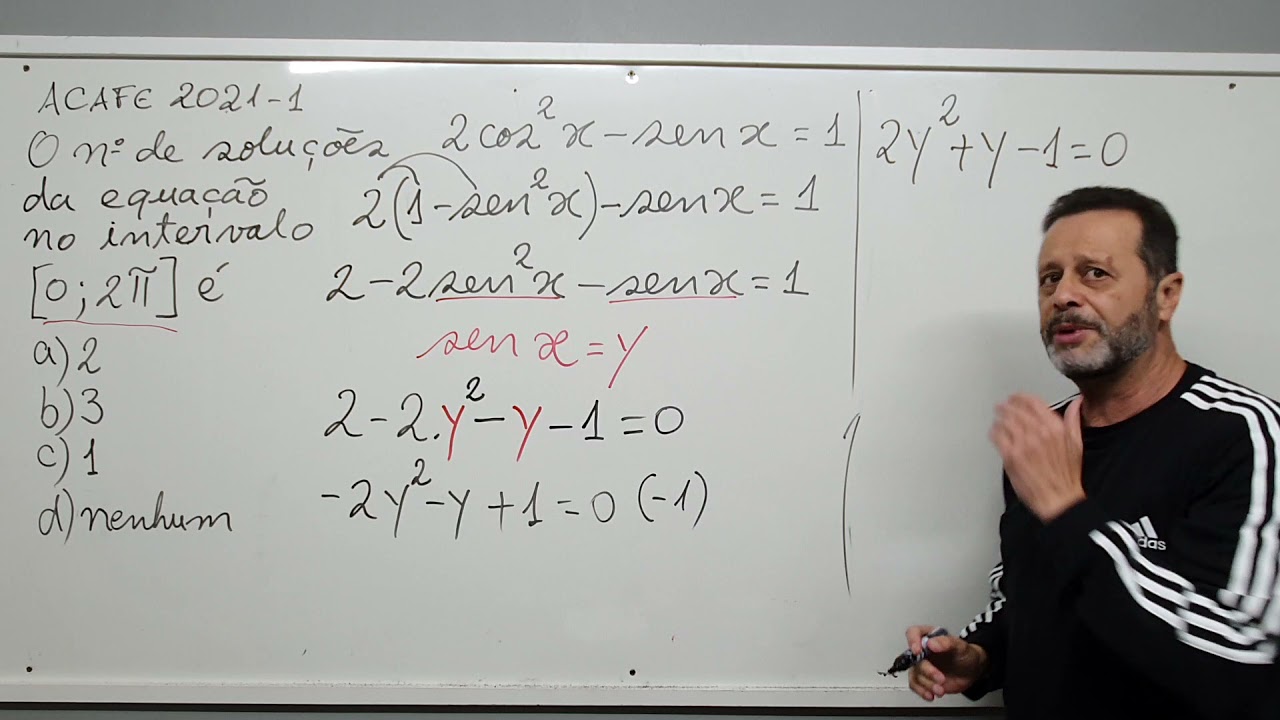 ACAFE 2021-1
O nº de soluções
da equação
no intervalo
[0;2π] é
a) 2
b) 3
c) 1
d) nenhum
2cos²x - senx = 1
2(1 - sen²x) - senx = 1
2 - 2sen²x - senx = 1
sen x = y
2 - 2.y² - y - 1 = 0
-2y² - y + 1 = 0 (-1)
2y² + y - 1 = 0
adidas